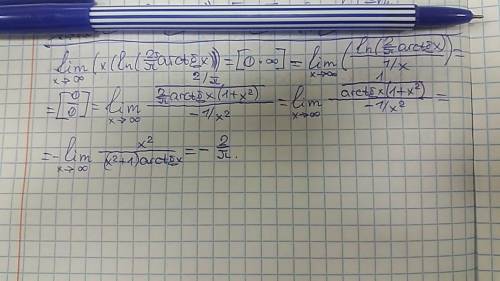 lim x→∞ (x(ln(2/π arctg x)) = [0·∞] = lim x→∞ (ln(2/π arctg x) / 1/x) =
= [0/0] = lim x→∞ (2/π) / (2/π arctg x (1+x²)) / −1/x² = lim x→∞ 1 / (arctg x (1+x²)) / −1/x² =
= − lim x→∞ x² / (x²+1) arctg x = − 2/π.